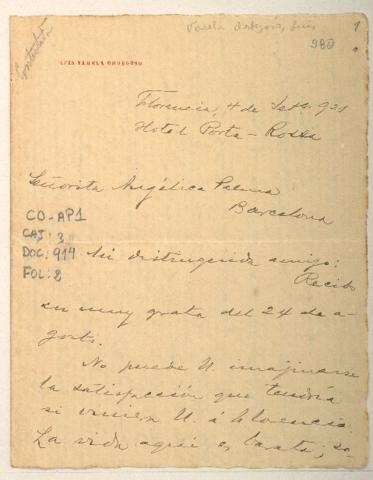 Varela Orbegoso, Luis
980
1
Contestada
LUIS VARELA ORBEGOSO
Florencia, 4 de Set. 921
Hotel Porta-Rossa
Señorita Angélica Palma
Barcelona
CO-AP1
CAJ: 3
DOC: 914
FOL: 8
Mi distinguida amiga:
Recibo
su muy grata del 24 de a-
gosto.
No puede U imajinarse
la satisfacción que tendría
si viniera U. á Florencia.
La vida aquí es barata; so-